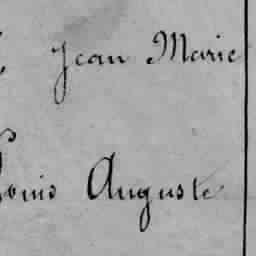 Jean Marie
Louis Auguste